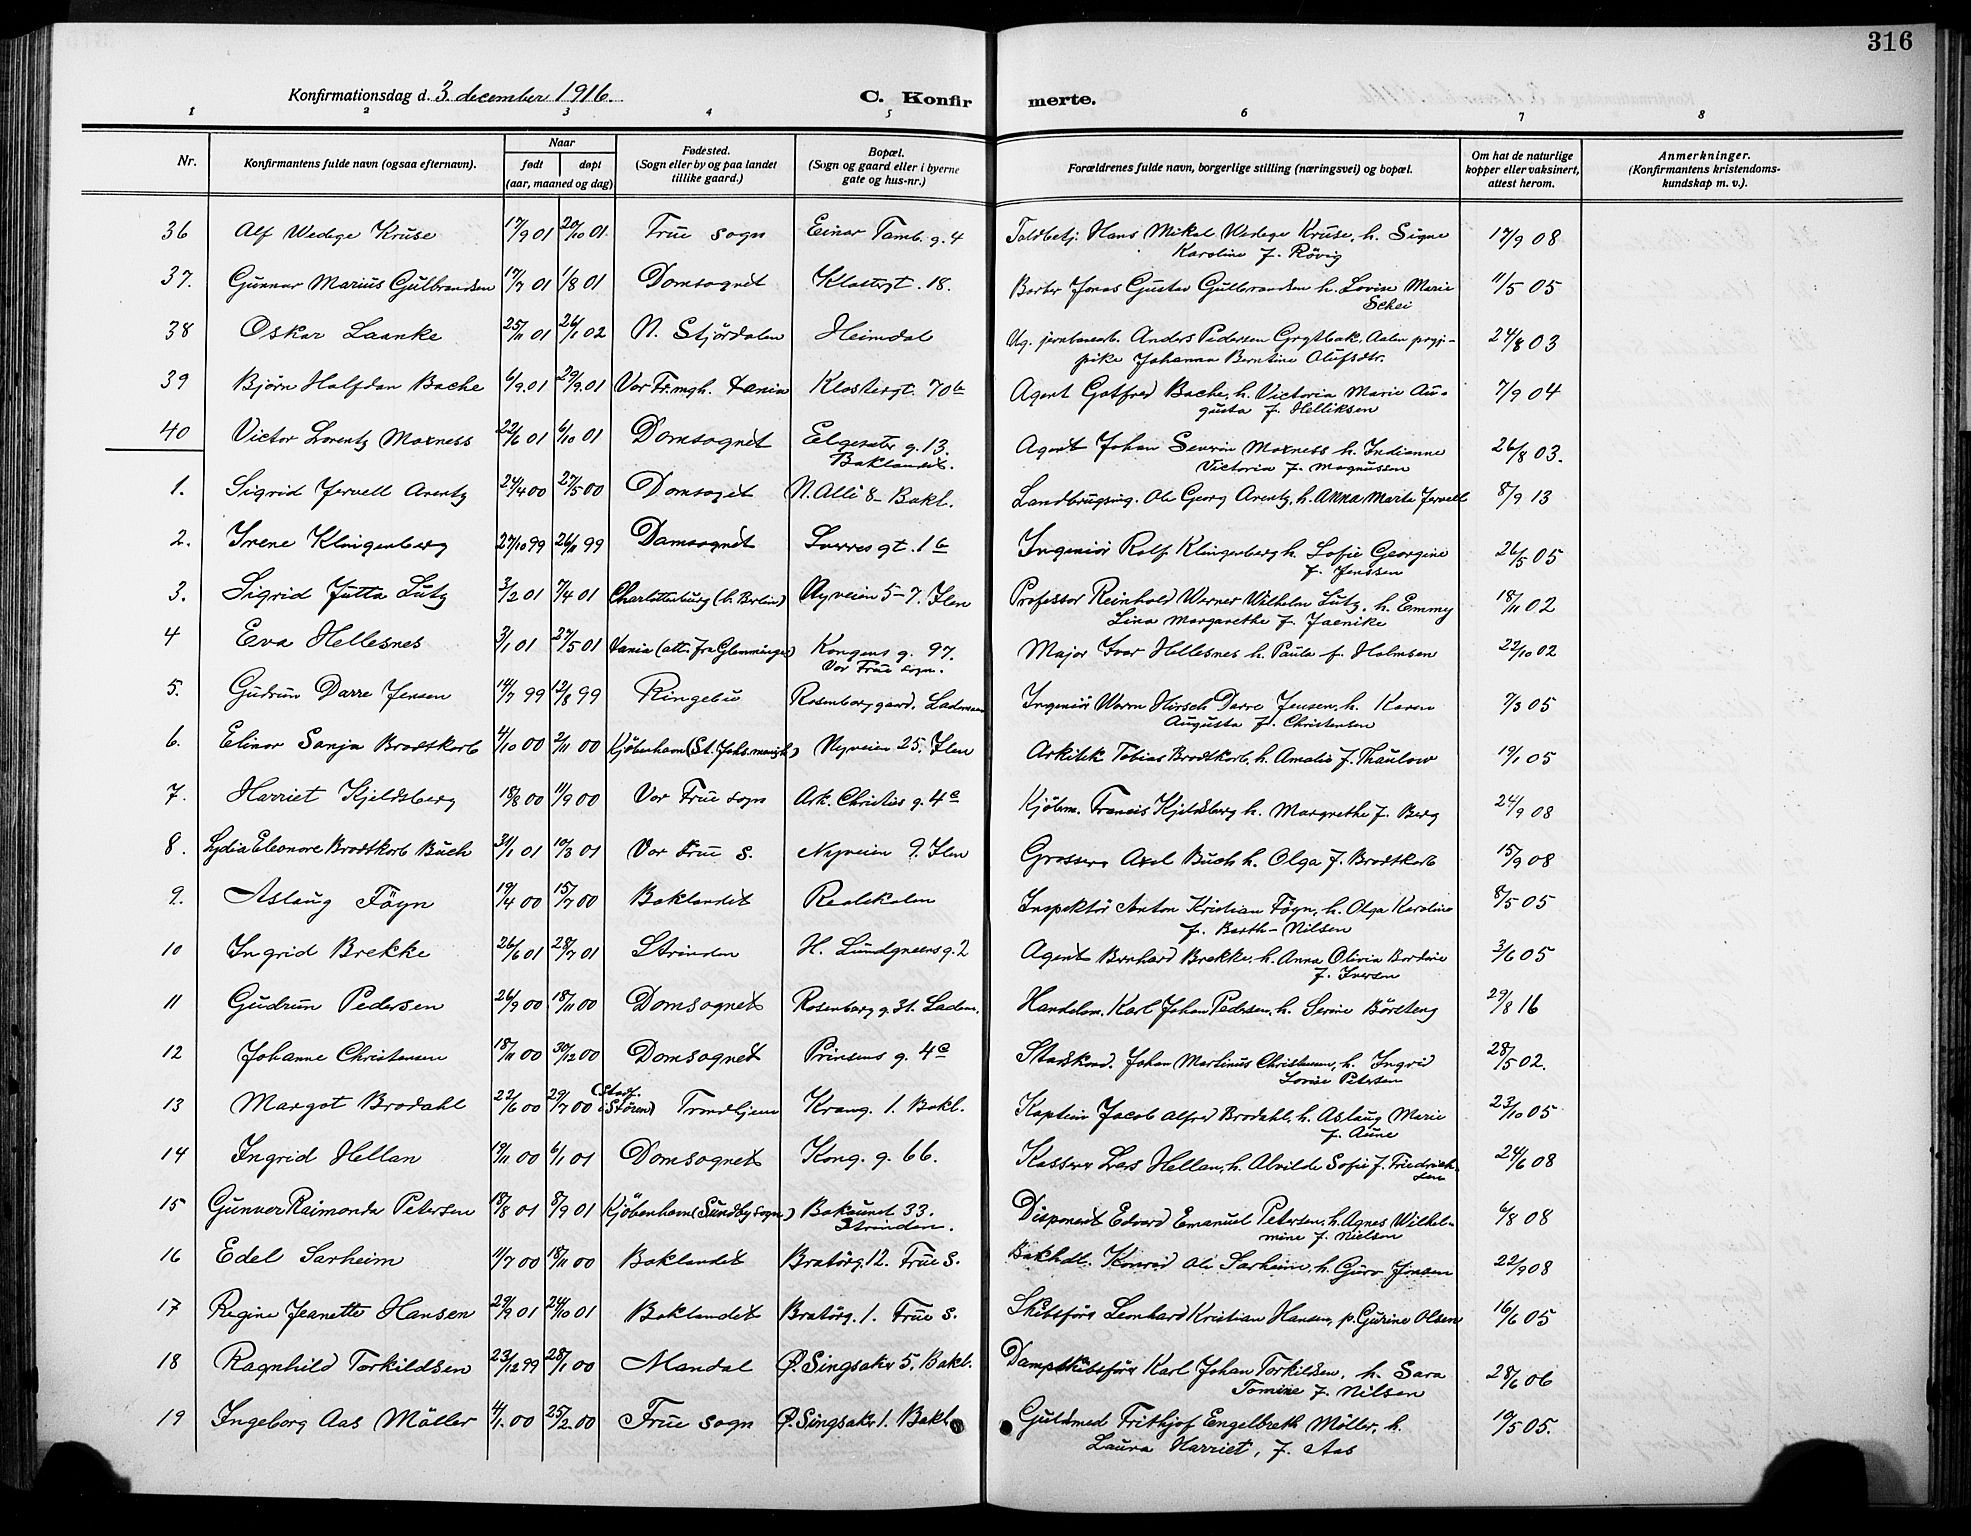 316
Konfirmationsdag d. 3 december 1916.
C. Konfir merte.
1 2 3 4 5 6 7 8
Nr. Konfirmantens fulde navn (ogsaa efternavn). Naar født døpt (aar, maaned og dag) Fødested. (Sogn eller by og paa landet tillike gaard.) Bopæl. (Sogn og gaard eller i byerne gate og hus-nr.) Forældrenes fulde navn, borgerlige stilling (næringsvei) og bopæl. Om hat de naturlige kopper eller vaksinert, attest herom. Anmerkninger. (Konfirmantens kristendomskundskap m. v.).
36 Alf Wedege Kruse 17/9 01 20/10 01 Frue sogn Einar Tamb. g. 4 Toldbetj. Hans Mikal Wedege Kruse, h. Signe 17/9 08
Karoline f. Rövig
37. Gunnar Marius Gulbrandsen 17/7 01 1/8 01 Domsognet Klostergt. 18. Barber Jonas Gustav Gulbrandsen h. Lovise Marie 11/5 05
Schei
38 Oskar Laanke 25/11 01 26/1 02 N. Stjördalen Heimdal Ug. jernbanearb. Anders Pedersen Grytbak, Aalen 24/8 03
pike Johanna Berntine Olufsdtr.
39 Bjørn Halfdan Bache 6/9 01 29/9 01 Vor Fr. mgh. Xania Klostergt. 70b Agent Gotfred Bache, h. Victoria Marie Au- 7/9 04
gusta f. Helliksen
40 Victor Lorentz Moxness 22/6 01 6/10 01 Domsognet Elgesæter g. 13. Agent Johan Severin Moxness h. Indianne 26/8 03.
Baklandet. Victoria f. Magnussen
1. Sigrid Jervell Arentz 24/4 00 27/5 00 Domsoget N. Allé 8 - Bakl. Landbrugsing. Ole Georg Arentz, h. Anna Marie Jervell 8/9 13
2. Irene Klingenberg 27/10 99 26/11 99 Domsognet Sverresgt. 1b Ingeniör Rolf Klingenberg h. Sofie Georgine 26/5 05
f. Jenssen
3. Sigrid Jutta Lutz 3/2 01 7/4 01 Charlottenburg (b. Berlin) Nyveien 5-7. Ilen Professor Reinhold Werner Wilhelm Lutz, h. Emmy 18/11 02
Lina Margarethe f. Jaenike
4 Eva Hellesnes 3/1 01 27/5 01 Xania (att. fra Glemminge) Kongens g. 97. Major Ivar Hellesnes h. Paula f. Holmsen 22/10 02
Vor Frue sogn.
5. Gudrun Darre Jensen 14/7 99 12/8 99 Ringebu Rosenborg gaard. Lademoen Ingeniör Worm Hirsch Darre Jensen, h. Karen 7/3 05
Augusta f. Christensen
6. Elinor Sanja Brodtkorb 4/10 00 2/11 00 Kjöbenhavn (St. Johs. menigh.) Nyveien 25. Ilen Arkitek Tobias Brodtkorb, h. Amalie f. Thaulow 19/1 05
7. Harriet Kjeldsberg 18/8 00 11/9 00 Vor Frue sogn Ark. Christies g. 4c Kjöbm. Francis Kjeldsberg h. Margrethe f. Berg 24/9 08
8. Lydia Eleonore Brodtkorb Buch 31/1 01 10/3 01 Vor Frue s. Nyveien 9. Ilen Grosserer Axel Buch h. Olga f. Brodtkorb 15/9 08
9. Aslaug Föyn 19/4 00 15/7 00 Baklandet Realskolen Inspektör Anton Kristian Föyn, h. Olga Karoline 8/5 05
f. Barth-Nilsen
10 Ingrid Brekke 26/6 01 28/7 01 Strinden H. Lundgreensg. 2 Agent Bernhard Brekke, h. Anna Olivia Bordine 3/6 05
f. Iversen
11 Gudrun Pedersen 26/9 00 18/11 00 Domsognet Rosenborg g. 31. Ladem. Handelsm. Karl Johan Pedersen, h. Serine Börsteng 29/8 16
12 Johanne Christensen 18/11 00 30/12 00 Domsognet Prinsens g. 4c Stadskond. Johan Martinus Christensen, h. Ingrid 28/5 02.
Lovise Petersen
13 Margot Brodahl 22/6 00 29/7 00 (Stadf. i Stören) Trondhjem Krang. 1. Bakl. Kaptein Jacob Alfred Brodahl, h. Aslaug Marie 23/10 05
f. Aune
14 Ingrid Hellan 19/11 00 6/1 01 Domsognet Kong. g. 66. Kasserer Lars Hellan, h. Alvilde Sofie f. Friedrich- 24/6 08
sen
15 Gunver Raimonda Petersen 18/8 01 8/9 01 Kjöbenhavn (Sundby sogn) Bakaunet 33. Disponent Edvard Emanuel Petersen, h. Agnes Wilhel- 6/8 08
Strinden. mine f. Nielsen
16 Edel Sarheim 11/7 00 18/11 00 Baklandet Bratörg. 12. Frue s. Bokhdl. Konrad Ole Sarheim, h. Guro Jonsen 22/9 08
17 Regine Jeanette Hansen 29/9 01 24/10 01 Baklandet Bratörg. 1. Frue s. Skibsförer Leonhard Kristian Hansen, p. Gurine Olsen 16/6 05
18 Ragnhild Torkildsen 23/12 99 28/1 00 Mandal Ø. Singsaker 5. Bakl. Dampskibsförer Karl Johan Torkildsen, h. Sara 28/6 06
Tomine f. Nilsen
19 Ingeborg Aas Möller 4/1. 00 25/2. 00 Frue sogn Ø. Singsaker 1. Bakl. Guldsmed Frithjof Engelbreth Möller, h. 19/5 05.
Laura Harriet, f. Aas